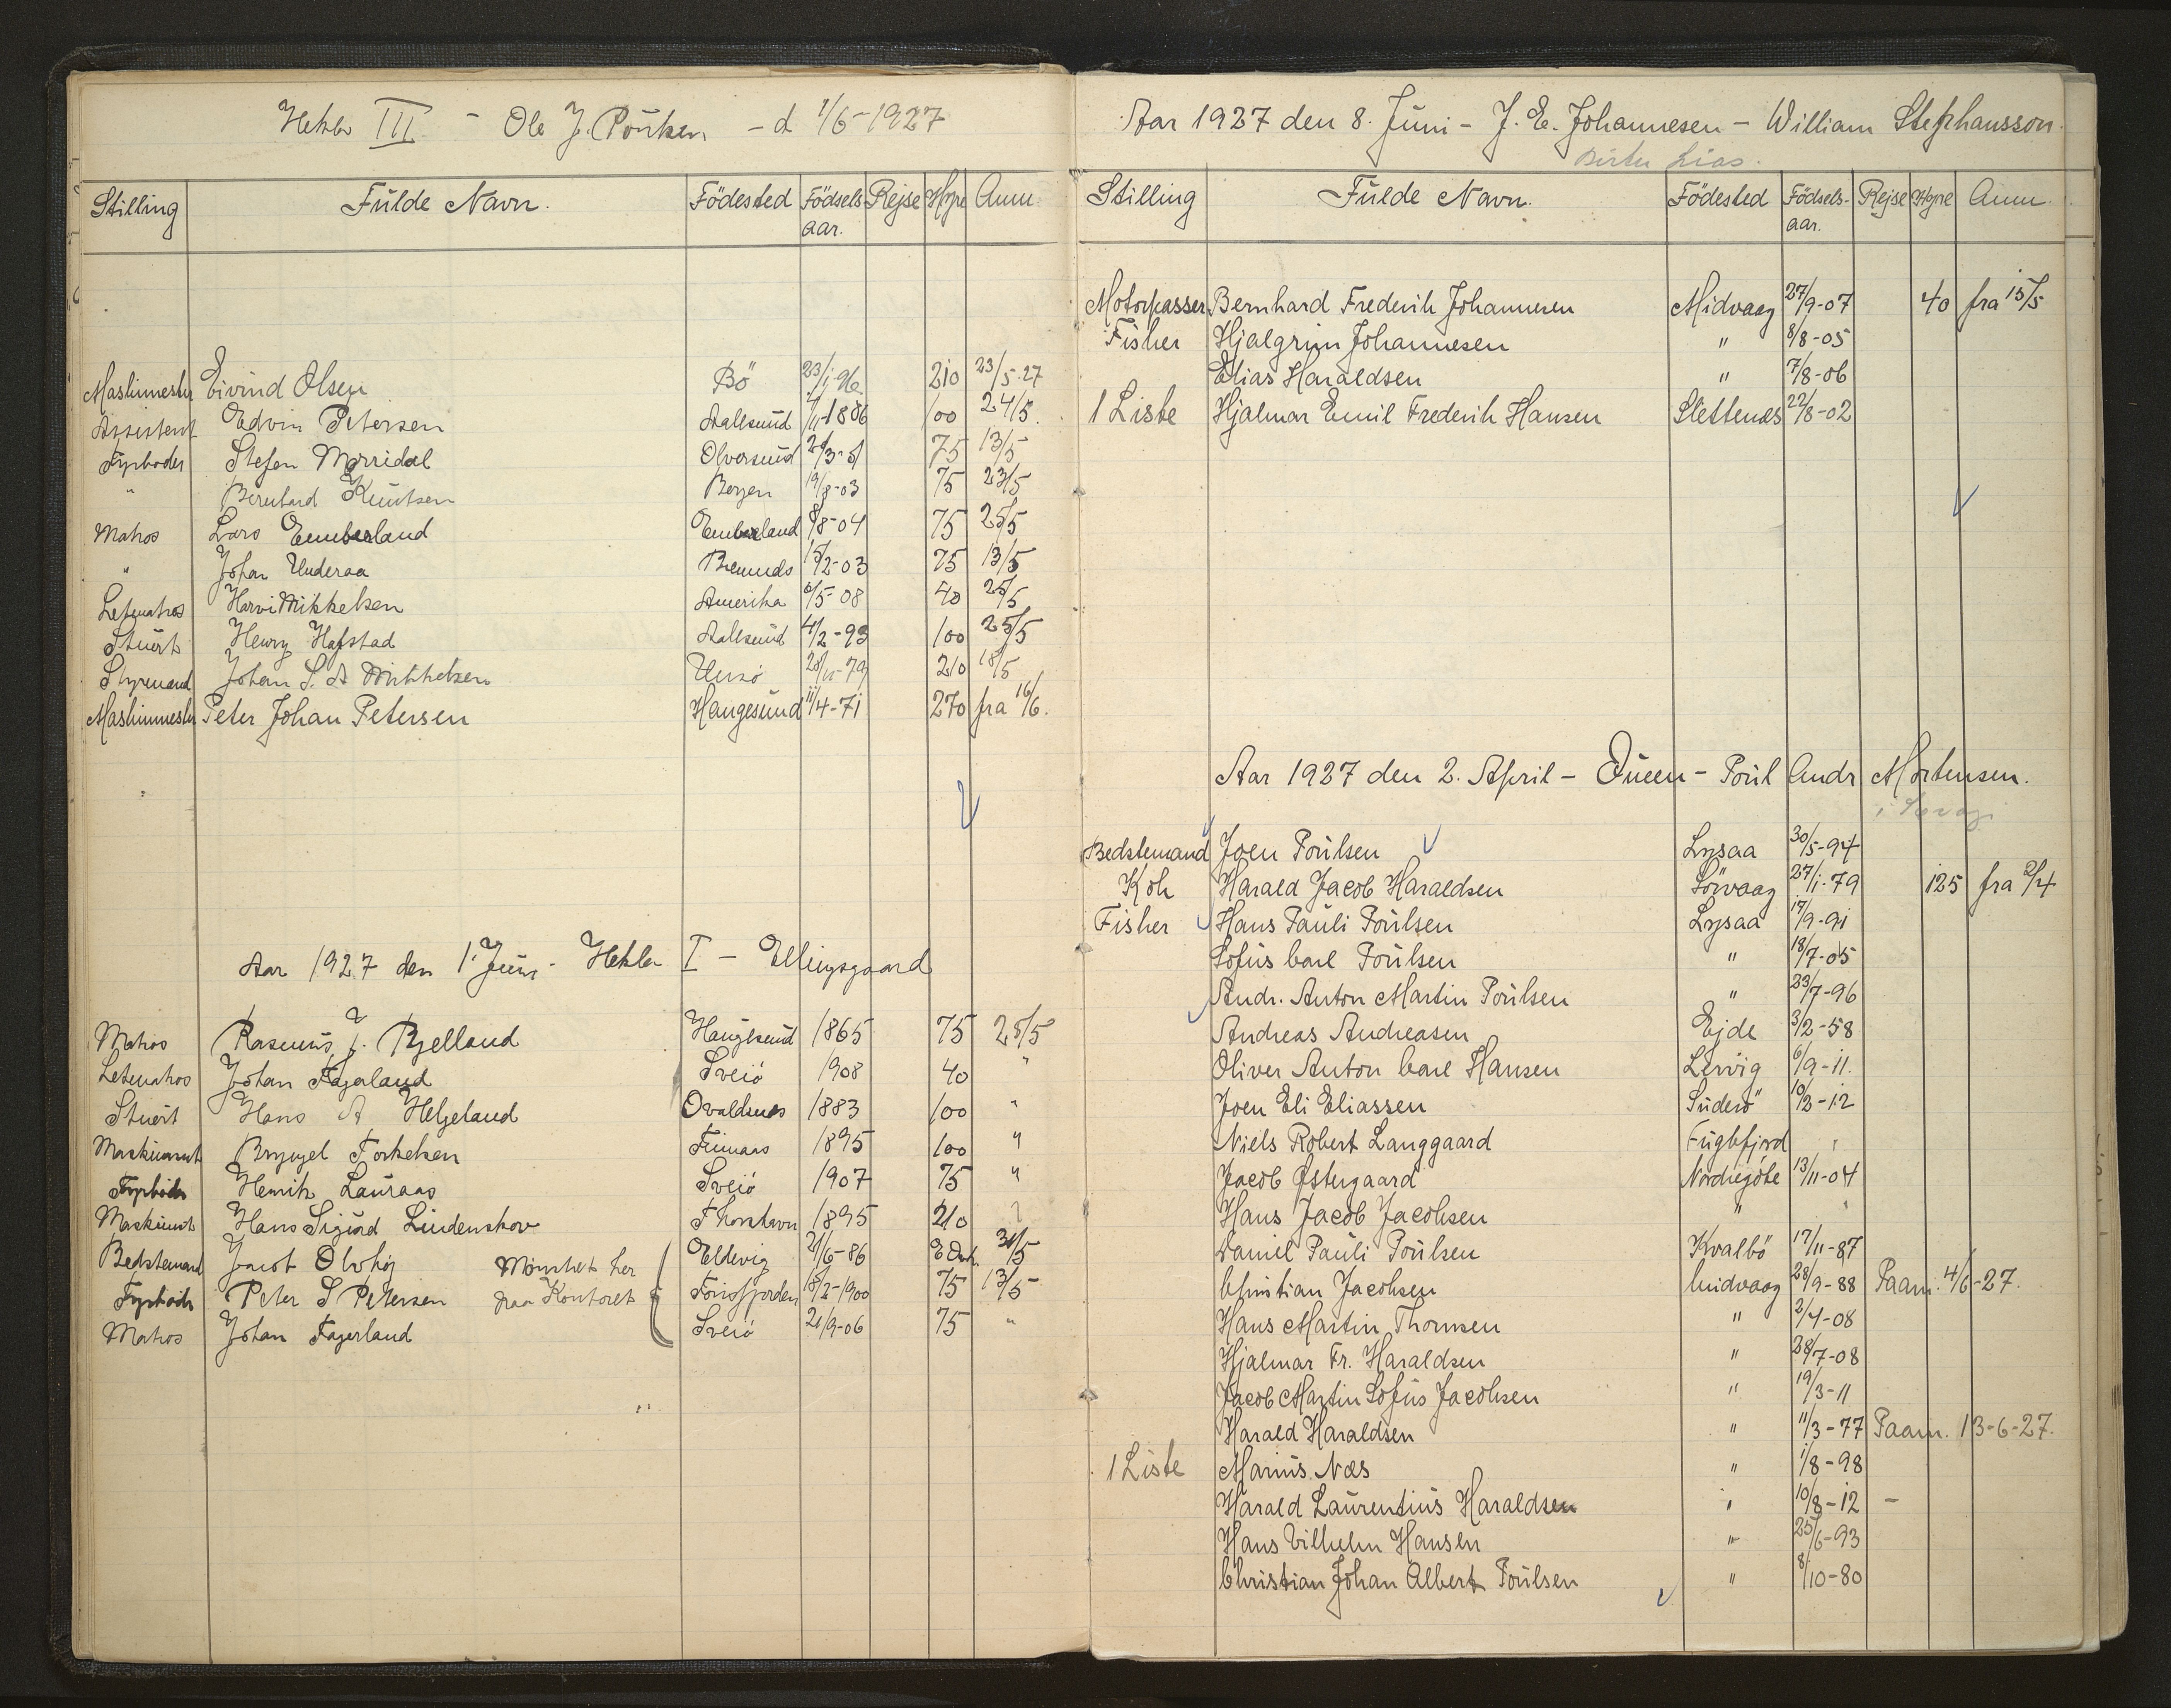 Hekla III - Ole J. Poulsen - d 1/6-1927
Stilling Fulde Navn. Födested Födsels-aar. Rejse Hyre Anm.
Maskinmester Eivind Olsen Bö 23/1-96 210 23/5-27
Assistent Edvin Petersen Aalesund 1886 100 24/5.
Fyrboder Stefen Morridal Olversund 75 13/5
" Bernhard Knutsen Bergen 19/8-03 75 23/5
Matros Lars Emberland Emberland 9/8-04 75 25/5
" Johan Underaa Bremnes 15/2-03 75 13/5
Letmatros Harvi Mikkelsen Amerika 6/5-08 40 25/5
Stuert Henry Hafstad Aalesund 4/2-93 100 25/5
Styrmand Johan S. A Mikkelsen 210 18/5
Maskinmester Peter Johan Petersen Haugesund 11/4-71 270 fra 16/6.
Aar 1927 den 1. Juni - Hekla I - Ellingsgaard
Matros Rasmus J. Bjelland Haugesund 1865 75 25/5
Letmatros Johan Fagerland Sveiö 1908 40 "
Stuert Hans A Helgeland Ovaldsnes 1883 100 "
Maskinasst Brynjel Torkelsen 1895 100 "
Fyrböder Henrik Lauraas Sveiö 1907 75 "
Maskinmst Hans Sigurd Lindenskov Thorshavn 1895 210
Bedstemand Jacob Olvhöj Mönstret her Eldevig 21/6-86 31/5
Fyrböder Peter S Petersen paa Kontoret 18/2-1900 75 13/5
Matros Johan Fagerland Sveiö 21/9-06 75 "
Aar 1927 den 8. Juni - J. E. Johannesen - William Stephansson.
Stilling Fulde Navn. Födested Födsels-aar. Rejse Hyre Anm.
Motorpasser Bernhard Frederik Johannesen Midvaag 27/9-07 40 fra 15/5
Fisker Hjalgrim Johannesen " 8/8-05
Elias Haraldsen " 7/8-06
1 Liste Hjalmar Emil Frederik Hansen Slettenæs 22/8-02
Aar 1927 den 2. April - Queen - Poul Andr Mortensen.
Bedstemand Joen Poulsen Lysaa 30/5-94
Kok Harald Jacob Haraldsen Sörvaag 27/1-79 125 fra 2/4
Fisker Hans Pauli Poulsen Lysaa 17/9-91
Sofus Carl Poulsen " 18/7-05
Andr. Anton Martin Poulsen " 23/7-96
Andreas Andreasen Ejde 3/2-58
Oliver Anton Carl Hansen Lervig 6/9-11.
Joen Eli Eliassen Suderö 10/2-12
Niels Robert Langgaard Fuglefjord "
Jacob Østergaard Nordregöte 13/11-04
Hans Jacob Jacobsen " "
Daniel Pauli Poulsen Kvalbö 17/11-87
Christian Jacobsen Midvaag 28/9-88 Paam. 4/6-27.
Hans Martin Thomsen " 2/4-08
Hjalmar Fr. Haraldsen " 28/7-08
Jacob Martin Sofus Jacobsen " 19/3-11
Harald Haraldsen " 11/3-77 Paam. 13-6-27.
1 Liste Marius Næs " 1/8-98
Harald Laurentius Haraldsen " 10/8-12 -
Hans Vilhelm Hansen " 25/6-93
Christian Johan Albert Poulsen " 8/10-80